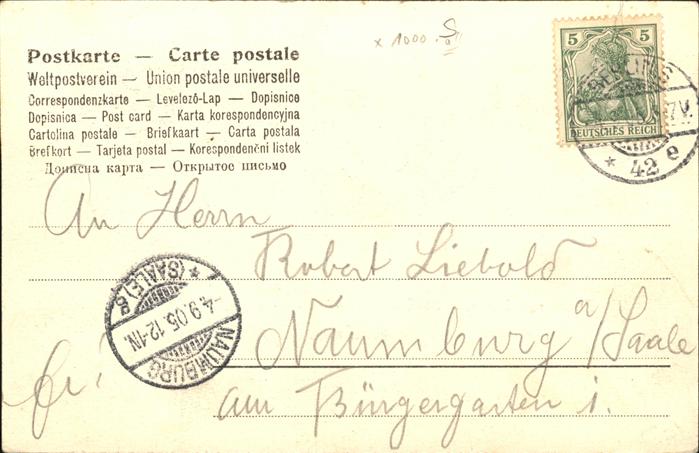 × 1000
5 5
DEUTSCHES REICH
BERLIN
7V.
* 42 e
Postkarte — Carte postale
Weltpostverein — Union postale universelle
Correspondenzkarte — Levelező-Lap — Dopisnice
Dopisnica — Post card — Karta korespondencyjna
Cartolina postale — Briefkaart — Carta postala
Brefkort — Tarjeta postal — Korespondenčni listek
Дописна карта — Открытое письмо
An Herrn
Robert Liebold
Naumburg a/Saale
am Bürgergarten 1.
fr.
NAUMBURG
-4.9.05.12-1N.
* (SAALE) 8